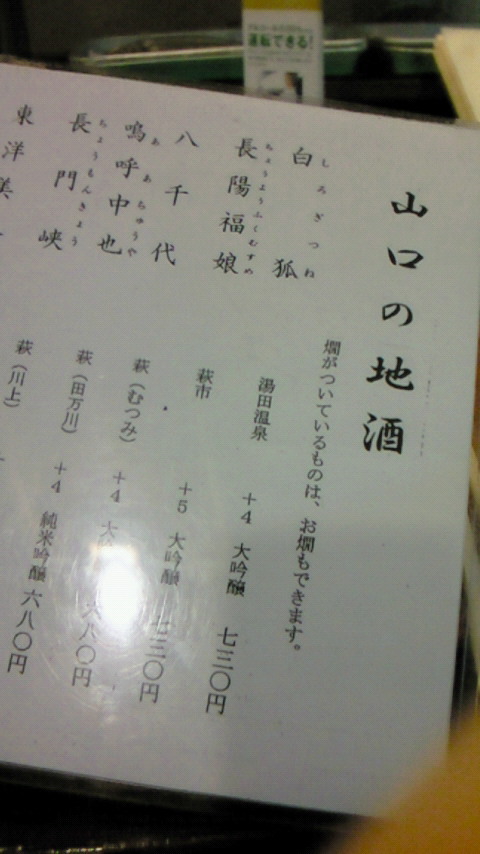 運転できる!
山口の地酒
燗がついているものは、お燗もできます。
白狐 しろぎつね 湯田温泉 +4 大吟醸 七三〇円
長陽福娘 ちょうようふくむすめ 萩市 +5 大吟醸 七三〇円
八千代 萩(むつみ) +4 大 八〇円
嗚呼中也 ああちゅうや 萩(田万川) +4 純米吟醸 六八〇円
長門峡 ちょうもんきょう 萩(川上)
東洋美